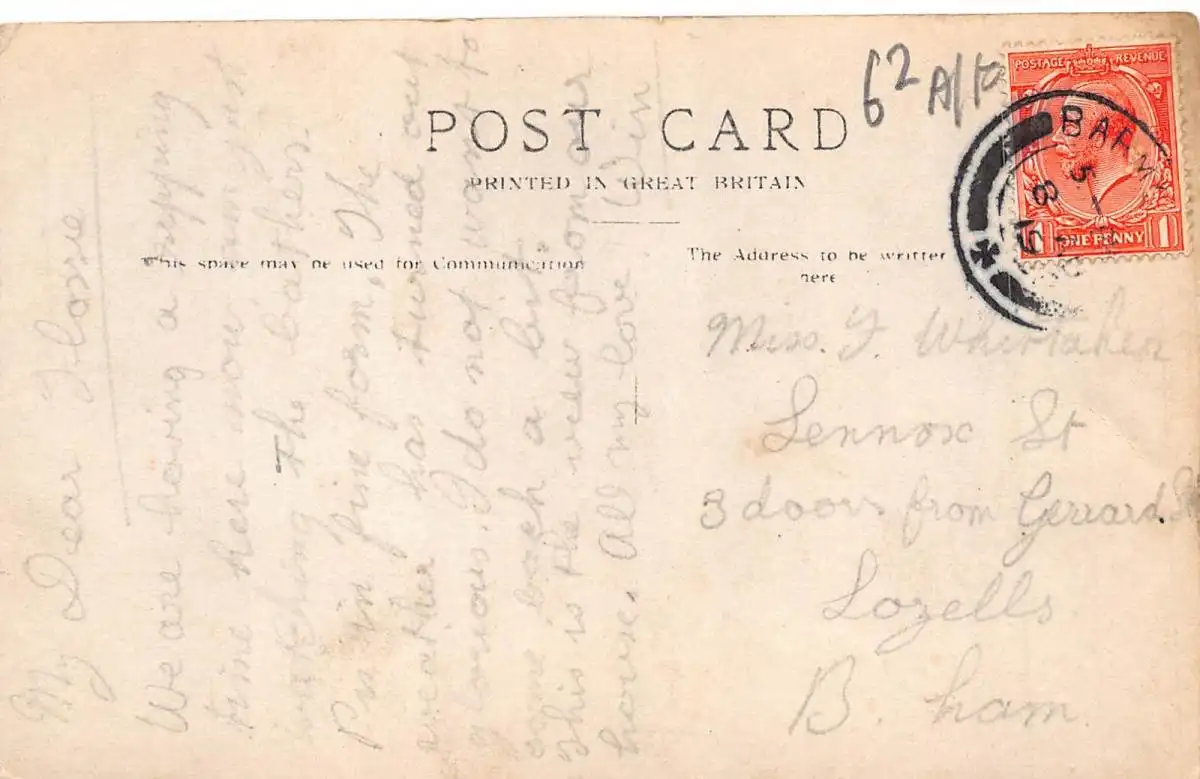 62 A/10
POSTAGE REVENUE
ONE PENNY
1 1
BARM
POST CARD
PRINTED IN GREAT BRITAIN
This space may be used for Communication
The Address to be written
here
My Dear Flossie
We are having a ripping
time here now I am just
watching the bathers.
I'm in fine form, The
weather has turned out
glorious. I do not want to
come back a bit.
This is the view from our
house. All my love Win
Miss. F. Whittaker
Lennox St
3 doors from Gerrard
Lozells
B. ham.